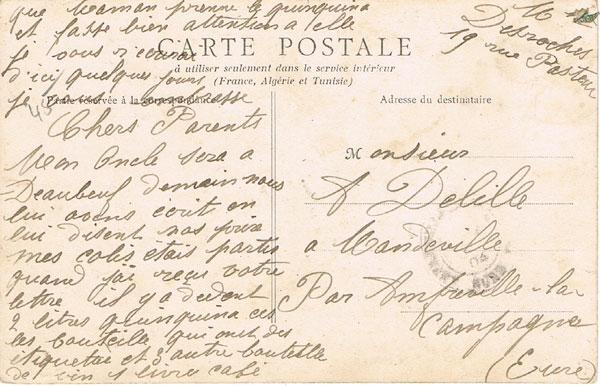 que Maman prenne le quinquina
et fasse bien attention a elle
je vous
d'ici quelques jours
je vous embrasse
CARTE POSTALE
à utiliser seulement dans le service intérieur
(France, Algérie et Tunisie)
Partie réservée à la correspondance
Adresse du destinataire
M
Desroches
19 rue Pasteur
45
Chers Parents
Mon Oncle sera a
demain nous
lui avons écrit en
lui disent nos
mes colis étais partis
quand j'ai reçu votre
lettre il y a dedent
2 litres quinquina ces
les bouteille qui ont des
étiquetas et d'autre bouteille
de vin 1 livre café
Monsieur
A Delille
a Mandeville
Par Amfreville-la-
Campagne
(Eure)
04
EURE